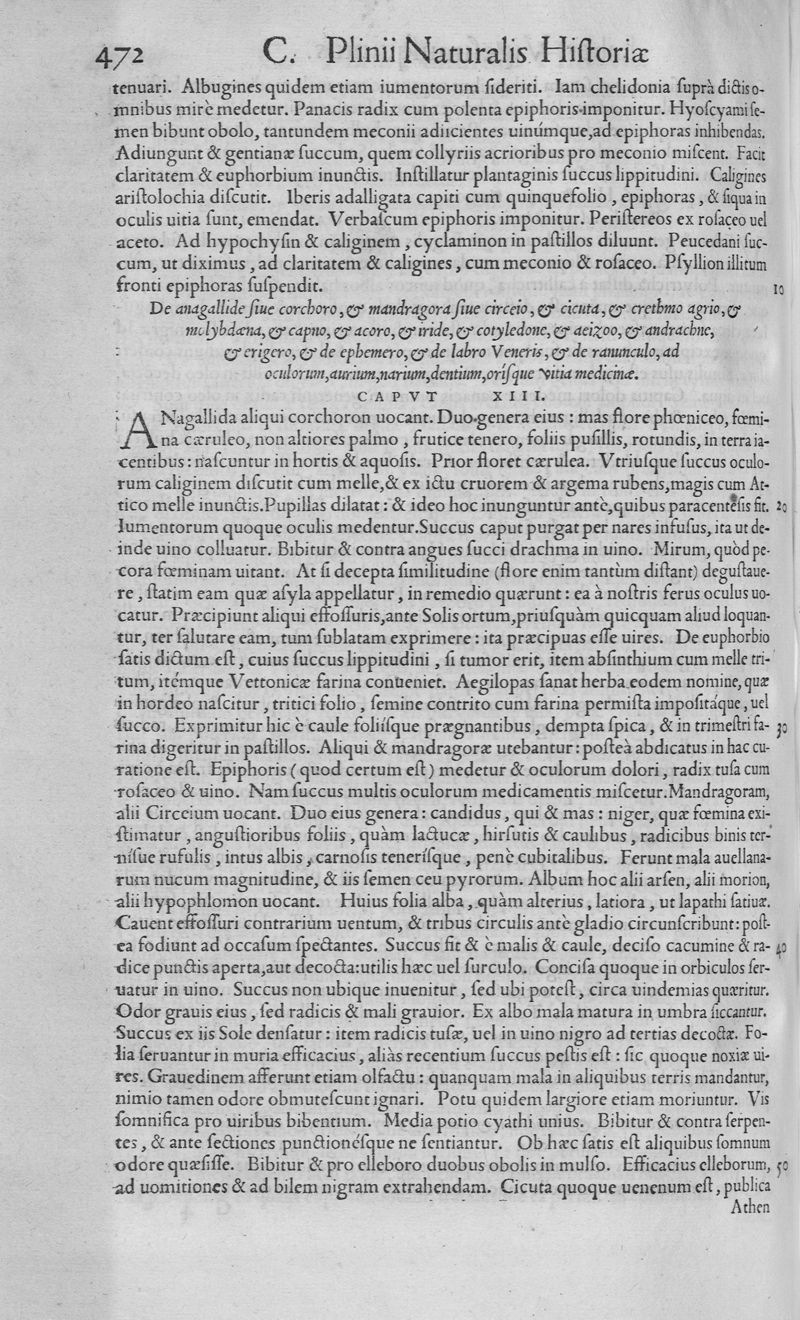 472 C. Plinii Naturalis Hiſtoriæ
tenuari. Albugines quidem etiam iumentorum ſideriti. Iam chelidonia ſuprà dictis o-
mnibus mirè medetur. Panacis radix cum polenta epiphoris imponitur. Hyoſcyami ſe-
men bibunt obolo, tantundem meconii adiicientes uinúmque,ad epiphoras inhibendas.
Adiungunt & gentianæ ſuccum, quem collyriis acrioribus pro meconio miſcent. Facit
claritatem & euphorbium inunctis. Inſtillatur plantaginis ſuccus lippitudini. Caligines
ariſtolochia diſcutit. Iberis adalligata capiti cum quinquefolio , epiphoras , & ſi qua in
oculis uitia ſunt, emendat. Verbaſcum epiphoris imponitur. Periſtereos ex roſaceo uel
aceto. Ad hypochyſin & caliginem , cyclaminon in paſtillos diluunt. Peucedani ſuc-
cum, ut diximus , ad claritatem & caligines , cum meconio & roſaceo. Pſyllion illitum
fronti epiphoras ſuſpendit. 10
De anagallide ſiue corchoro, & mandragora ſiue circeio, & cicuta, & crethmo agrio, &
molybdæna, & capno, & acoro, & iride, & cotyledone, & aeizoo, & andrachne,
& erigero, & de ephemero, & de labro Veneris, & de ranunculo, ad
oculorum,aurium,narium,dentium,oríſque vitia medicinæ.
CAPVT XIII.
ANagallida aliqui corchoron uocant. Duo genera eius : mas flore phœniceo, fœmi-
na cæruleo, non altiores palmo , frutice tenero, foliis puſillis, rotundis, in terra ia-
centibus : naſcuntur in hortis & aquoſis. Prior floret cærulea. Vtriuſque ſuccus oculo-
rum caliginem diſcutit cum melle,& ex ictu cruorem & argema rubens,magis cum At-
tico melle inunctis.Pupillas dilatat : & ideo hoc inunguntur antè,quibus paracentêſis fit. 20
Iumentorum quoque oculis medentur.Succus caput purgat per nares infuſus, ita ut de-
inde uino colluatur. Bibitur & contra angues ſucci drachma in uino. Mirum, quòd pe-
cora fœminam uitant. At ſi decepta ſimilitudine (flore enim tantùm diſtant) deguſtaue-
re , ſtatim eam quæ aſyla appellatur , in remedio quærunt : ea à noſtris ferus oculus uo-
catur. Præcipiunt aliqui effoſſuris,ante Solis ortum,priuſquàm quicquam aliud loquan-
tur, ter ſalutare eam, tum ſublatam exprimere : ita præcipuas eſſe uires. De euphorbio
ſatis dictum eſt , cuius ſuccus lippitudini , ſi tumor erit, item abſinthium cum melle tri-
tum, itémque Vettonicæ farina conueniet. Aegilopas ſanat herba eodem nomine, quæ
in hordeo naſcitur , tritici folio , ſemine contrito cum farina permiſta impoſitáque , uel
ſucco. Exprimitur hic è caule foliíſque prægnantibus , dempta ſpica , & in trimeſtri fa- 30
rina digeritur in paſtillos. Aliqui & mandragoræ utebantur : poſteà abdicatus in hac cu-
ratione eſt. Epiphoris ( quod certum eſt ) medetur & oculorum dolori , radix tuſa cum
roſaceo & uino. Nam ſuccus multis oculorum medicamentis miſcetur.Mandragoram,
alii Circeium uocant. Duo eius genera : candidus , qui & mas : niger, quæ fœmina exi-
ſtimatur , anguſtioribus foliis , quàm lactucæ , hirſutis & caulibus , radicibus binis ter-
níſue rufulis , intus albis , carnoſis teneríſque , penè cubitalibus. Ferunt mala auellana-
rum nucum magnitudine, & iis ſemen ceu pyrorum. Album hoc alii arſen, alii morion,
alii hypophlomon uocant. Huius folia alba , quàm alterius , latiora , ut lapathi ſatiuæ.
Cauent effoſſuri contrarium uentum, & tribus circulis antè gladio circunſcribunt: poſt-
ea fodiunt ad occaſum ſpectantes. Succus fit & è malis & caule, deciſo cacumine & ra- 40
dice punctis aperta,aut decocta:utilis hæc uel ſurculo. Conciſa quoque in orbiculos ſer-
uatur in uino. Succus non ubique inuenitur , ſed ubi poteſt , circa uindemias quæritur.
Odor grauis eius , ſed radicis & mali grauior. Ex albo mala matura in umbra ſiccantur.
Succus ex iis Sole denſatur : item radicis tuſæ, uel in uino nigro ad tertias decoctæ. Fo-
lia ſeruantur in muria efficacius , aliàs recentium ſuccus peſtis eſt : ſic quoque noxiæ ui-
res. Grauedinem afferunt etiam olfactu : quanquam mala in aliquibus terris mandantur,
nimio tamen odore obmuteſcunt ignari. Potu quidem largiore etiam moriuntur. Vis
ſomnifica pro uiribus bibentium. Media potio cyathi unius. Bibitur & contra ſerpen-
tes , & ante ſectiones punctionéſque ne ſentiantur. Ob hæc ſatis eſt aliquibus ſomnum
odore quæſiſſe. Bibitur & pro elleboro duobus obolis in mulſo. Efficacius elleborum, 50
ad uomitiones & ad bilem nigram extrahendam. Cicuta quoque uenenum eſt , publica
Athen